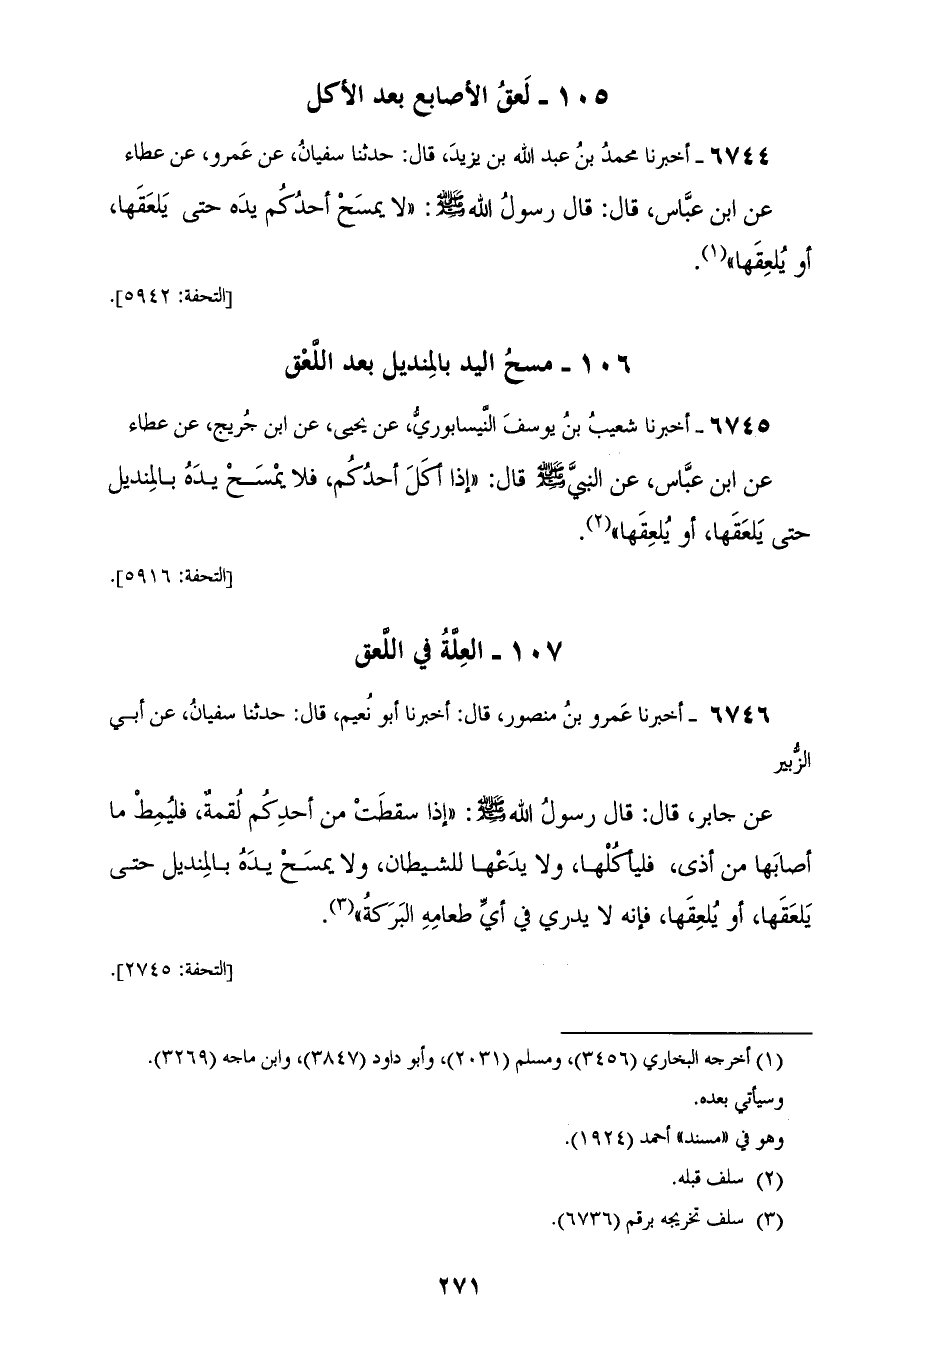 ١٠٥ ـ لَعقُ الأصابع بعد الأكل
٦٧٤٤ ـ أخبرنا محمدُ بنُ عبد الله بن يزيدَ، قال: حدثنا سفيانُ، عن عَمرو، عن عطاء
عن ابن عبَّاس، قال: قال رسولُ الله ﷺ: «لا يمسَحْ أحدُكُم يدَه حتى يَلعَقَها،
أو يُلعِقَها»(١).
[التحفة: ٥٩٤٢].
١٠٦ ـ مسحُ اليد بالمِنديل بعد اللَّعْق
٦٧٤٥ ـ أخبرنا شعيبُ بنُ يوسفَ النَّيسابوريُّ، عن يحيى، عن ابن جُريج، عن عطاء
عن ابن عبَّاس، عن النبيِّ ﷺ قال: «إذا أكَلَ أحدُكُم، فلا يمْسَحْ يدَهُ بالمِنديل
حتى يَلعَقَها، أو يُلعِقَها»(٢).
[التحفة: ٥٩١٦].
١٠٧ ـ العِلَّةُ في اللَّعق
٦٧٤٦ ـ أخبرنا عَمرو بنُ منصور، قال: أخبرنا أبو نُعيم، قال: حدثنا سفيانُ، عن أبي
الزُّبير
عن جابر، قال: قال رسولُ الله ﷺ: «إذا سقطَتْ من أحدِكُم لُقمةٌ، فليُمِطْ ما
أصابَها من أذى، فليأكُلْها، ولا يدَعْها للشيطان، ولا يمسَحْ يدَهُ بالمِنديل حتى
يَلعَقَها، أو يُلعِقَها، فإنه لا يدري في أيِّ طعامِهِ البَرَكةُ»(٣).
[التحفة: ٢٧٤٥].
(١) أخرجه البخاري (٣٤٥٦)، ومسلم (٢٠٣١)، وأبو داود (٣٨٤٧)، وابن ماجه (٣٢٦٩).
وسيأتي بعده.
وهو في «مسند» أحمد (١٩٢٤).
(٢) سلف قبله.
(٣) سلف تخريجه برقم (٦٧٣٦).
٢٧١